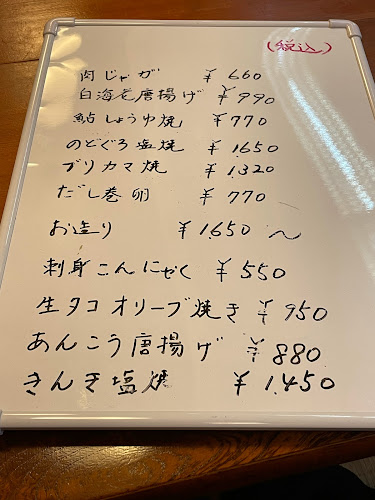 (税込)
肉じゃが ¥660
白海老唐揚げ ¥990
鮎しょうゆ焼 ¥770
のどぐろ塩焼 ¥1650
ブリカマ焼 ¥1,320
だし巻卵 ¥770
お造り ¥1,650〜
刺身こんにゃく ¥550
生タコオリーブ焼き ¥950
あんこう唐揚げ ¥880
きんき塩焼 ¥1,450